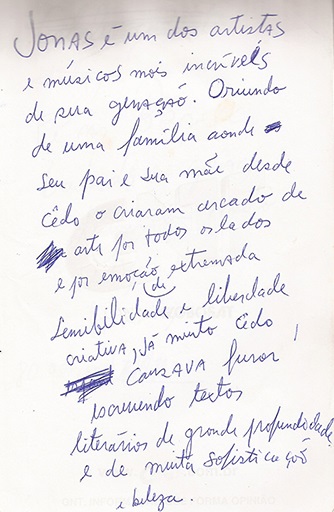 JONAS é um dos artistas
e músicos mais incríveis
de sua geração. Oriundo
de uma família aonde
seu pai e sua mãe desde
cêdo o criaram cercado de
arte por todos os lados
e por emoção, de extremada
sensibilidade e liberdade
criativa, JÁ muito cêdo
CAUSAVA furor,
escrevendo textos
literários de grande profundidade
e de muita sofisticação
e beleza.